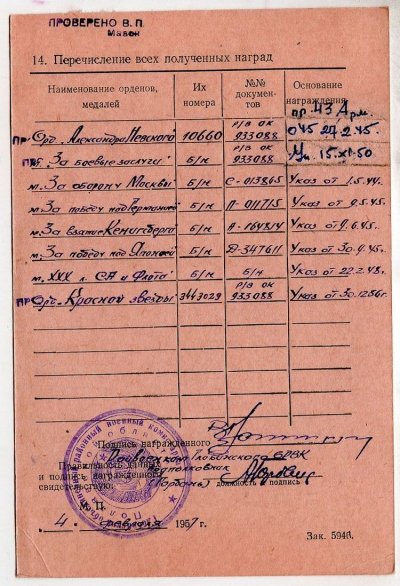 ПРОВЕРЕНО В. П.
14. Перечисление всех полученных наград
Наименование орденов, медалей
Их номера
№№ документов
Основание награждения
пр. 43 Арм.
Орд. Александра Невского 10660 р/в ОК 933088 045 27.2.45.
"За боевые заслуги" б/н 933088 Ук. 15.XI.50
м. За оборону Москвы б/н С-013865 Указ от 1.5.44.
м. За победу над Германией б/н Указ от 9.5.45.
м. За взятие Кенигсберга б/н А-164814 Указ от 9.6.45.
м. За победу над Японией б/н Д-347611 Указ от 30.9.45.
м. XXX л. СА и Флота б/н б/н Указ от 22.2.48.
Орд. Красной звезды 3443029 р/в ОК 933088 Указ от 30.12.56 г.
Подпись награжденного
Правильность данных
и подпись награжденного
свидетельствую:
должность и подпись
М. П.
„4 февраля 1957 г.
Зак. 5940.